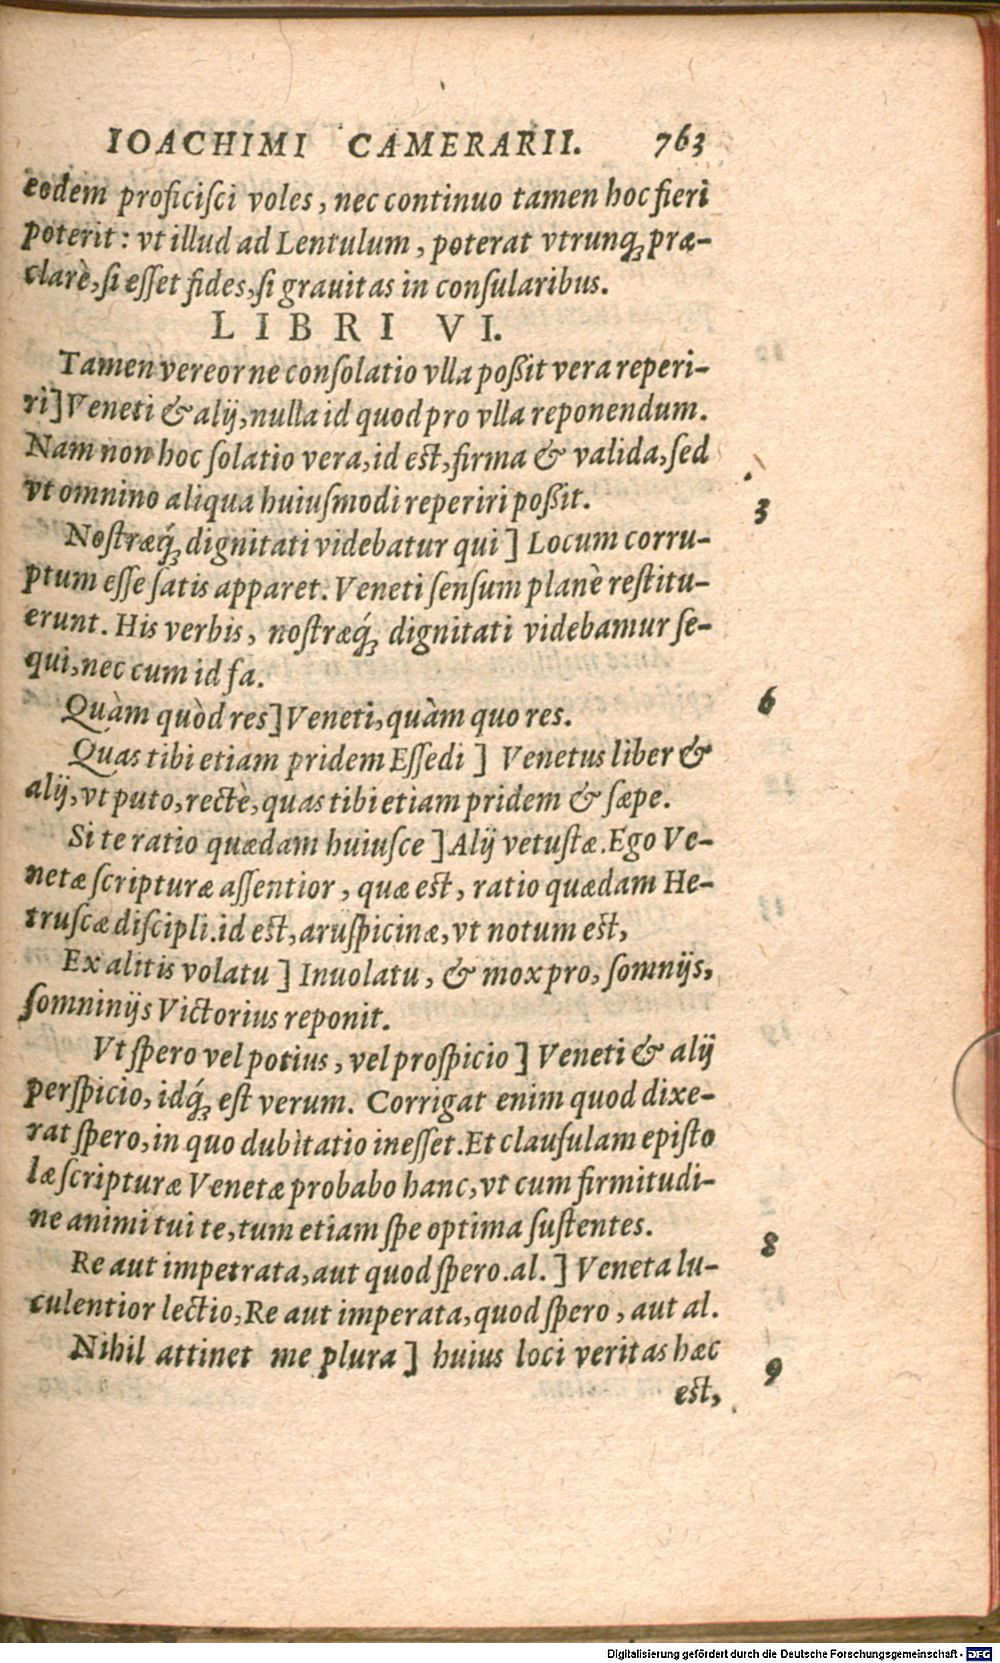 IOACHIMI CAMERARII. 763
eodem proficiſci voles, nec continuo tamen hoc fieri
poterit: vt illud ad Lentulum, poterat vtrunq; præ-
clarè, ſi eſſet fides, ſi grauitas in conſularibus.
LIBRI VI.
Tamen vereor ne conſolatio vlla poßit vera reperi-
ri] Veneti & alij, nulla id quod pro vlla reponendum.
Nam non hoc ſolatio vera, id est, firma & valida, ſed
vt omnino aliqua huiuſmodi reperiri poßit.
3
Noſtræq́; dignitati videbatur qui] Locum corru-
ptum eſſe ſatis apparet. Veneti ſenſum planè reſtitu-
erunt. His verbis, noſtræq́; dignitati videbamur ſe-
qui, nec cum id fa.
6
Quàm quòd res] Veneti, quàm quo res.
Quas tibi etiam pridem Eſſedi] Venetus liber &
alij, vt puto, rectè, quas tibi etiam pridem & ſæpe.
Si te ratio quædam huiuſce] Alij vetuſtæ. Ego Ve-
netæ ſcripturæ aſſentior, quæ est, ratio quædam He-
truſcæ diſcipli. id est, aruſpicinæ, vt notum est,
Ex alitis volatu] Inuolatu, & mox pro, ſomnijs,
ſomninijs Victorius reponit.
Vt ſpero vel potius, vel proſpicio] Veneti & alij
perſpicio, idq́; est verum. Corrigat enim quod dixe-
rat ſpero, in quo dubitatio ineſſet. Et clauſulam epiſto
læ ſcripturæ Venetæ probabo hanc, vt cum firmitudi-
ne animi tui te, tum etiam ſpe optima ſuſtentes.
8
Re aut impetrata, aut quod ſpero. al.] Veneta lu-
culentior lectio, Re aut imperata, quod ſpero, aut al.
9
Nihil attinet me plura] huius loci veritas hæc
est,
Digitalisierung gefördert durch die Deutsche Forschungsgemeinschaft - DFG